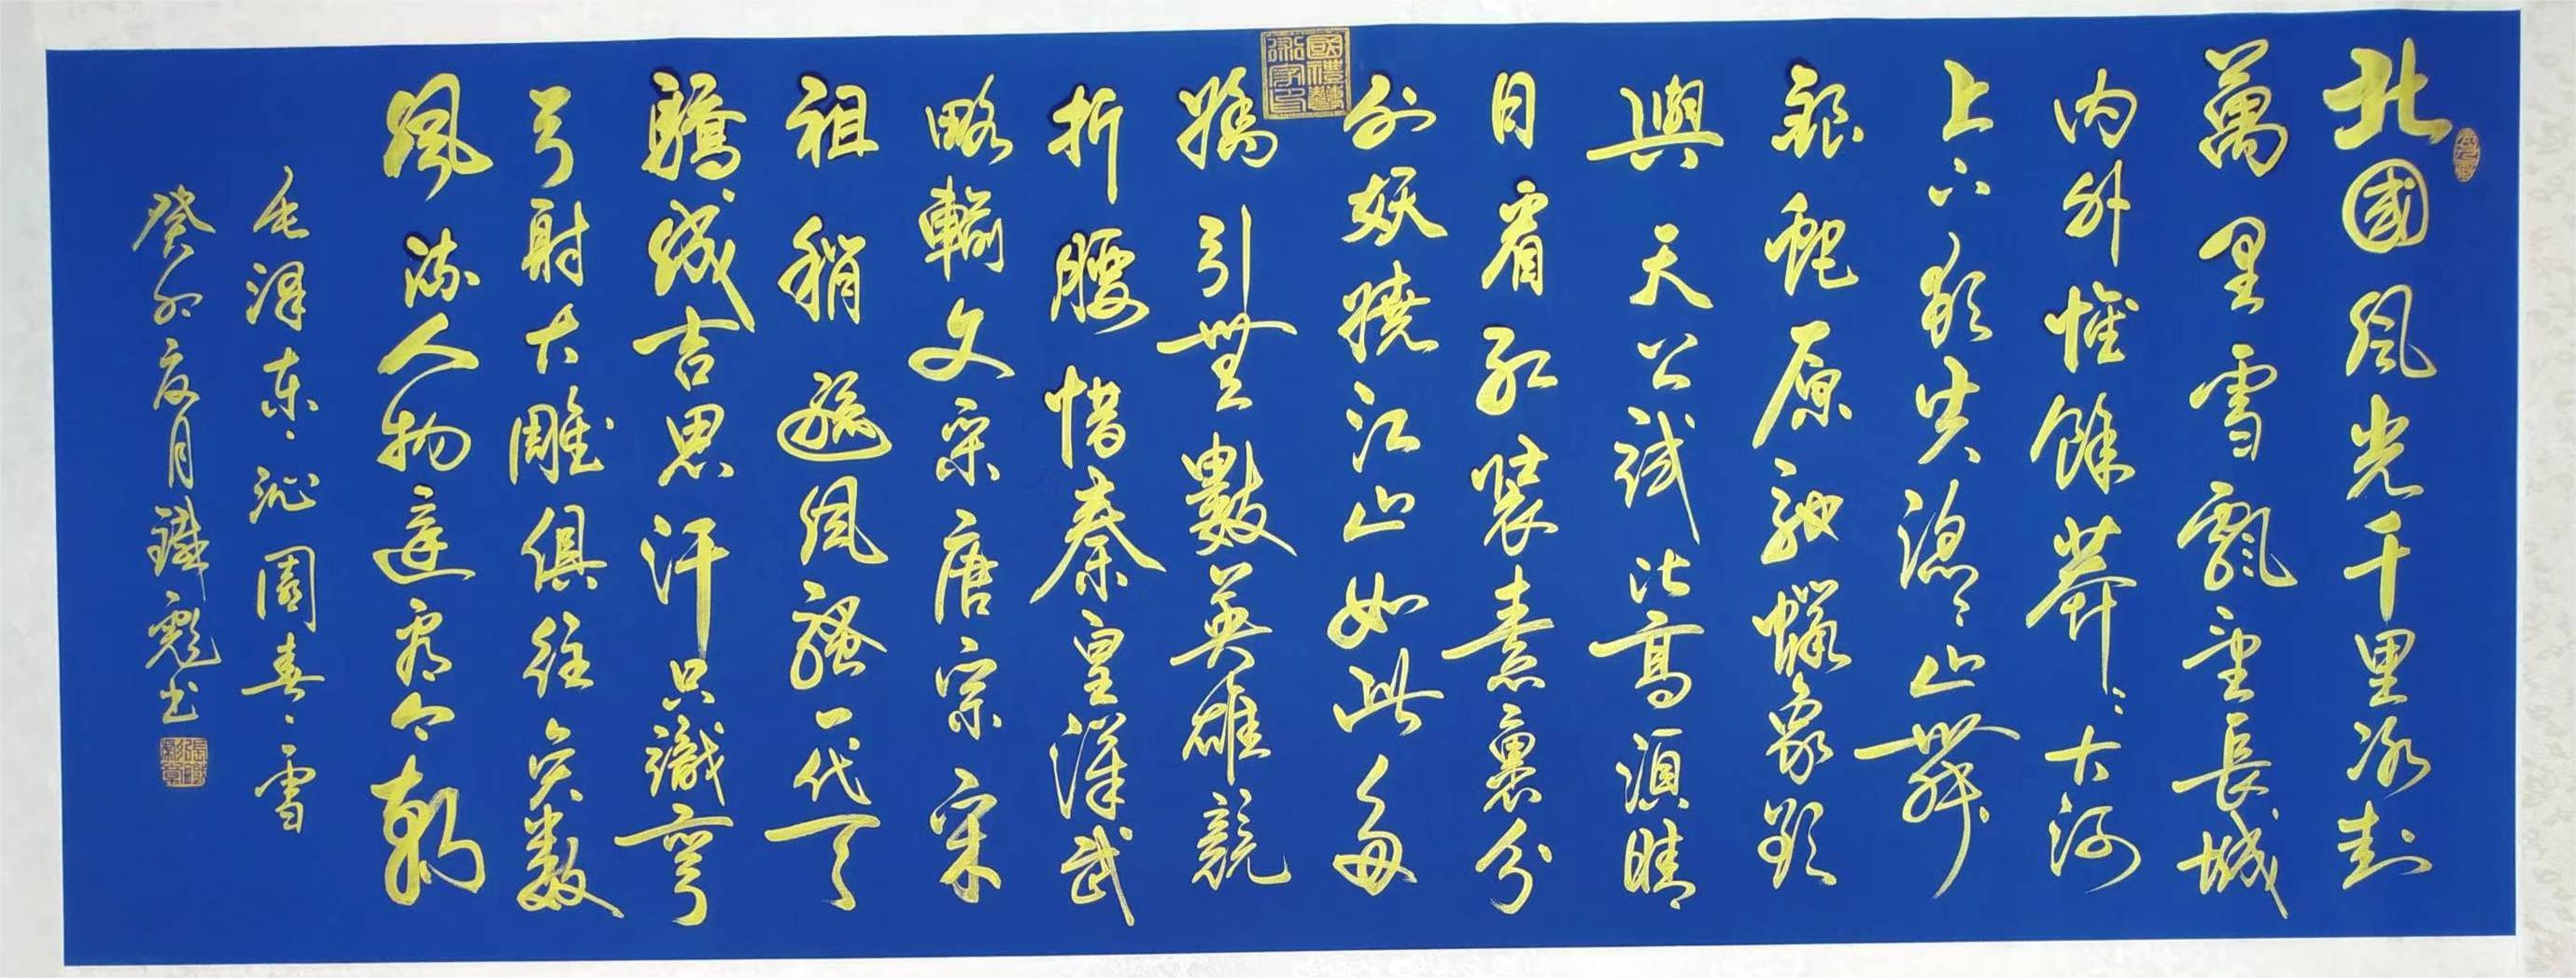 北國風光千里冰封
萬里雪飄望長城
内外惟餘莽〻大河
上下頓失滔〻山舞
銀蛇原馳蠟象欲
與天公試比高須晴
日看紅裝素裹分
外妖嬈江山如此多
嬌引無數英雄競
折腰惜秦皇漢武
略輸文采唐宗宋
祖稍遜風騷一代天
驕成吉思汗只識彎
弓射大雕俱往矣数
風流人物還看今朝
毛澤東、沁園春、雪
癸卯夏月鐵彪书
國禮藝術家印